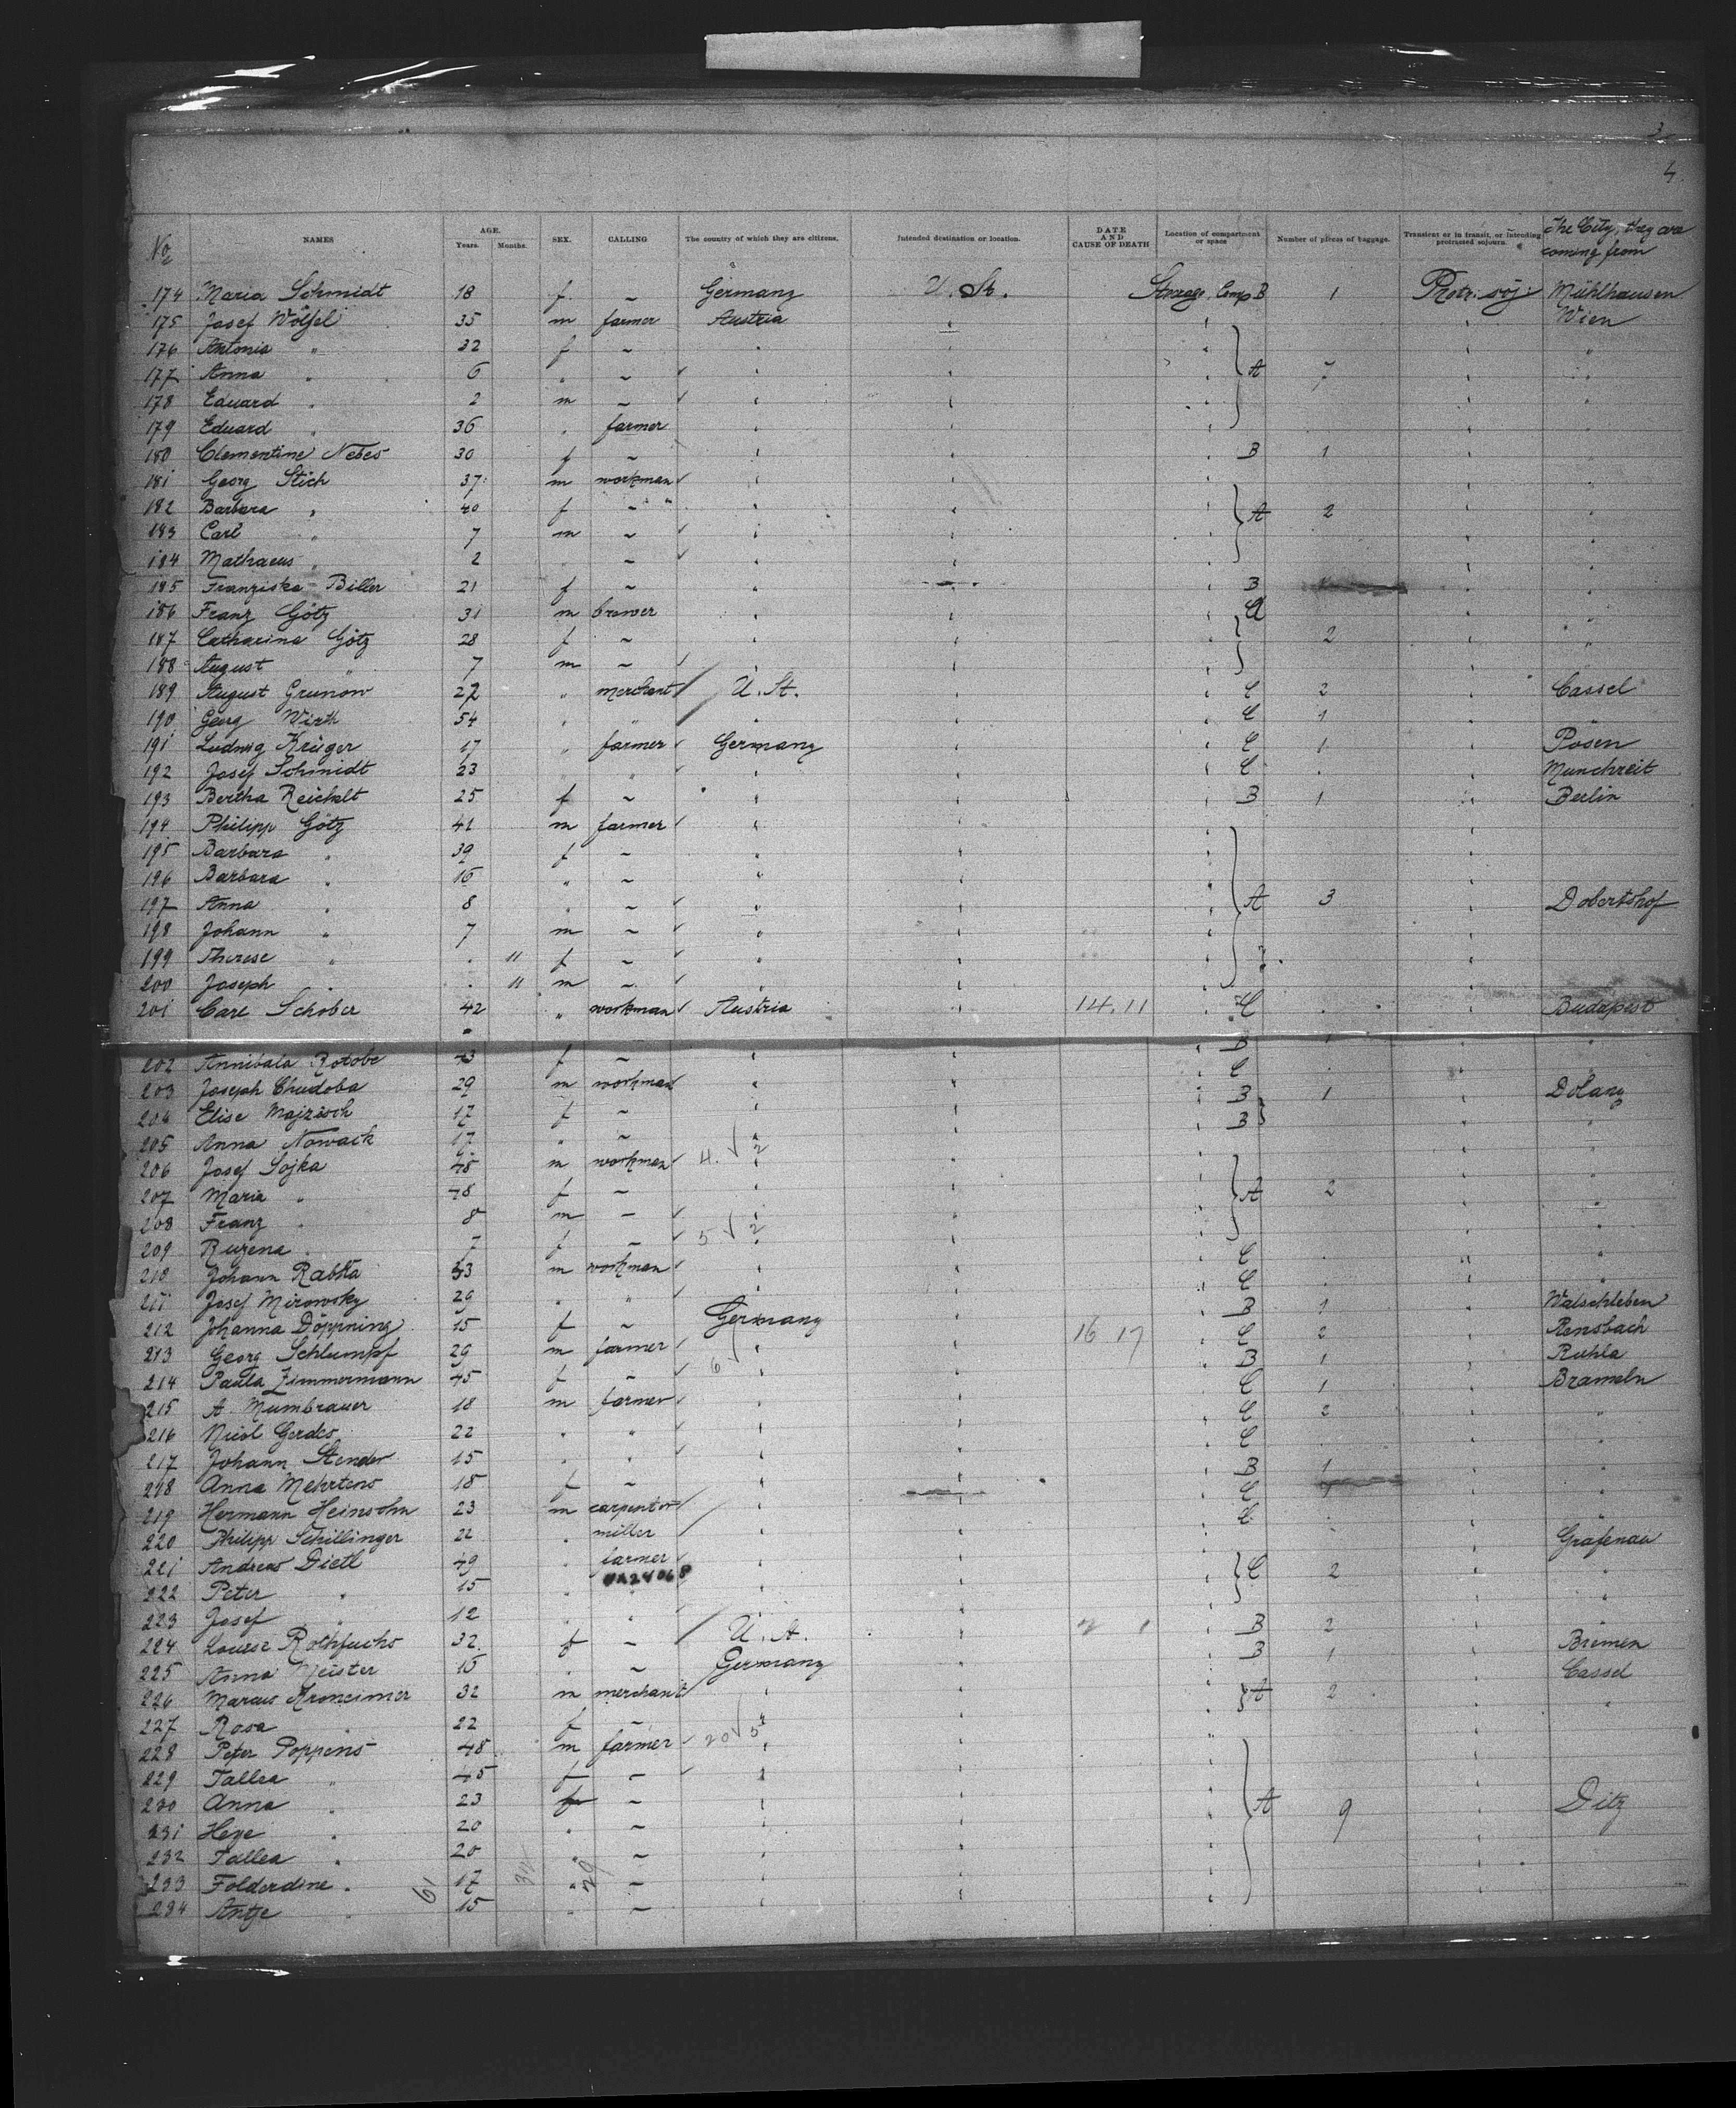 3
4
No NAMES AGE. Years. Months. SEX. CALLING The country of which they are citizens. Intended destination or location. DATE AND CAUSE OF DEATH Location of compartment or space Number of pieces of baggage. Transient or in transit, or intending protracted sojourn. The City, they are coming from
174 Maria Schmidt 18 f. – Germany U. St. Steerage Comp B 1 Protr. soj. Mühlhausen
175 Josef Wölfel 35 m farmer Austria Wien
176 Antonia " 32 f –
177 Anna " 6 " – A 7
178 Eduard " 2 m –
179 Eduard " 36 " farmer
180 Clementine Nebes 30 f – B 1
181 Georg Stich 37 m workman
182 Barbara " 40 f – A 2
183 Carl " 7 m –
184 Mathaeus " 2 –
185 Franziska Biller 21 f – B
186 Franz Götz 31 m brewer
187 Catharina Götz 28 f – 2
188 August " 7 m –
189 August Grunow 27 " merchant U. St. C 2 Cassel
190 Georg Wirth 54 " " C 1
191 Ludwig Krüger 17 " farmer Germany C 1 Posen
192 Josef Schmidt 23 " " C Munchreit
193 Bertha Reichelt 25 f – B 1 Berlin
194 Philipp Götz 41 m farmer
195 Barbara " 39 f –
196 Barbara " 16 " –
197 Anna " 8 " – A 3 Dobertshof
198 Johann " 7 m –
199 Therese " 11 f –
200 Joseph " 11 m –
201 Carl Schober 42 " workman Austria 14.11 C Budapest
202 Annibala 43 f – B
203 Joseph Chudoba 29 m workman C
204 Elise 17 f – B 1 Dolany
205 Anna Nowack 17 " – B
206 Josef Sojka 48 m workman 4. √ 2
207 Maria " 48 f – A 2
208 Franz " 8 m –
209 Ruzena " 7 f – 5 √ 2
210 Johann Rabka 43 m workman C
211 Josef Mirowsky 29 " " C
212 Johanna Döppning 15 f – Germany B 1 Walschleben
213 Georg Schlumpf 29 m farmer 16 17 C 2 Rensbach
214 Paula Zimmermann 45 f – 6 √ B 1 Ruhla
215 A. Mumbrauer 18 m farmer C 1 Brameln
216 Nicol Gerdes 22 " " C 2
217 Johann Stender 15 " " C
218 Anna Mehrtens 18 f – B 1
219 Hermann Heinsohn 23 m carpenter C
220 Philipp Schillinger 22 " miller C
221 Andreas Dietl 49 " farmer C 2 Grafenau
222 Peter " 15 "
223 Josef " 12 " "
224 Louise Rothfuchs 32 f – U. St. B 2 Bremen
225 Anna Meister 15 " – Germany B 1 Cassel
226 Marcus Kroneimer 32 m merchant A 2
227 Rosa " 22 f –
228 Peter Poppens 48 m farmer 20 √ 5
229 Tallea " 45 f –
230 Anna " 23 f – A 9 Ditz
231 Heye " 20 " –
232 Tallea " 20 " –
233 Folderdine " 17 " –
234 Antje " 15 " –
61 29